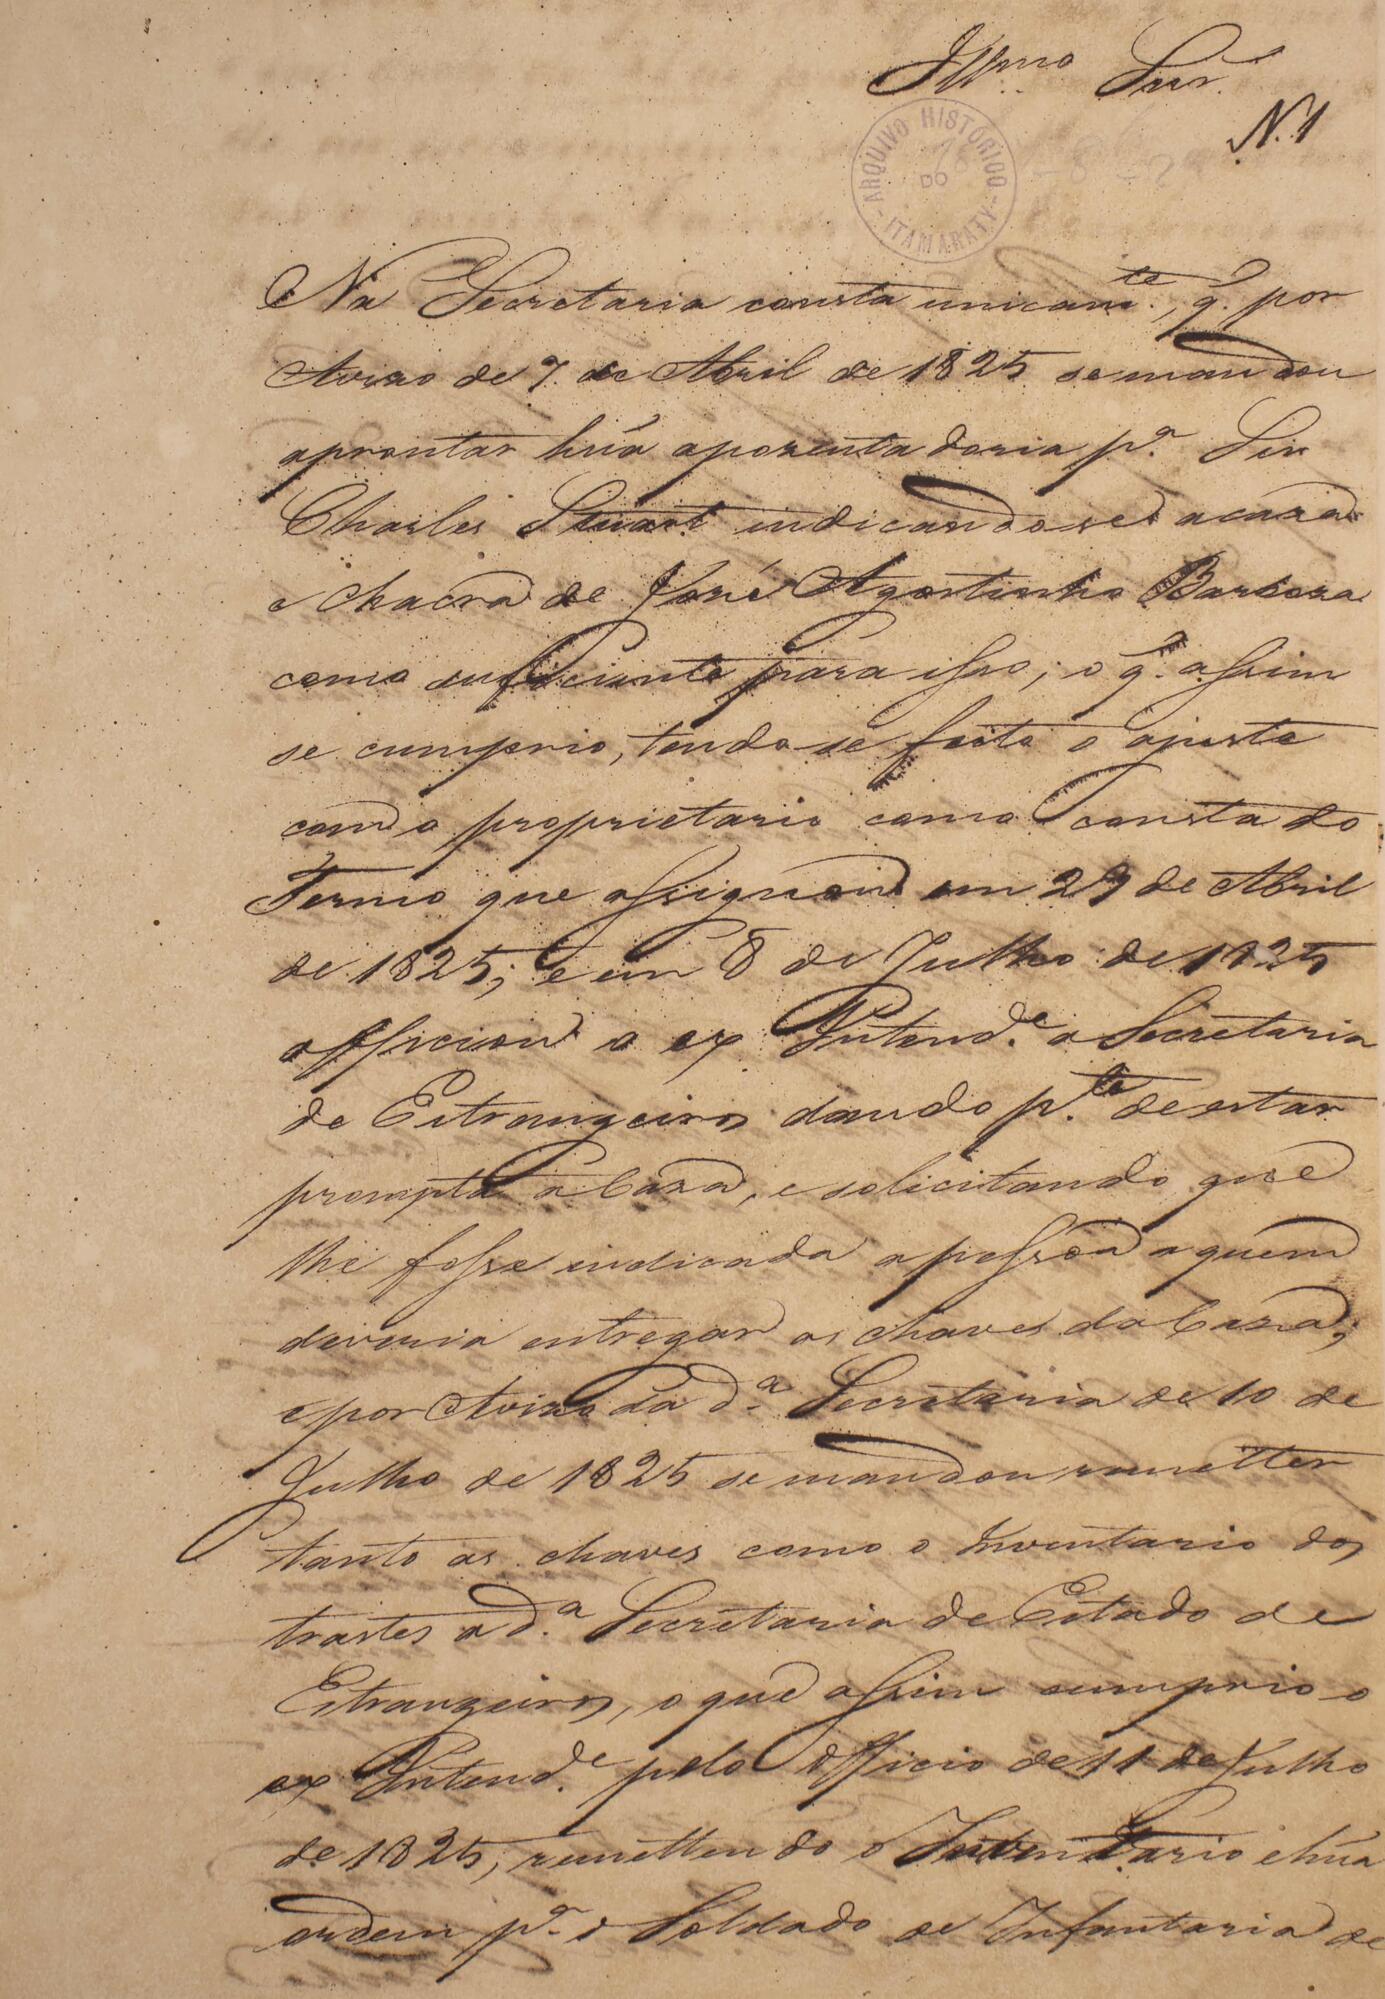 Illmo. Snr.
N. 1
ARQUIVO HISTÓRICO DO ITAMARATY
Na Secretaria consta unicamte., q. por
Avizo de 7 de Abril de 1825 se mandou
aprontar hũa aposentadoria pa. Sir
Charles Stuart indicando-se a caza
e chacra de José Agostinho Barboza
como suficiente para isso; o q. assim
se cumprio, tendo-se feito o ajuste
com o proprietario como consta do
Termo que assignou em 29 de Abril
de 1825; e em 8 de Julho de 1825
officiou o ex Intende. a Secretaria
de Estrangeiros dando pte. de estar
prompta a Caza, e solicitando que
lhe fosse indicada a pessoa a quem
deveria entregar as chaves da Caza;
e por Avizo da da. Secretaria de 10 de
Julho de 1825 se mandou remetter
tanto as chaves como o Inventario dos
trastes a da. Secretaria de Estado de
Estrangeiros, o que assim cumprio o
ex Intende. pelo Officio de 11 de Julho
de 1825, remettendo o Inventario e hũa
ordem pa. o Soldado de Infantaria de